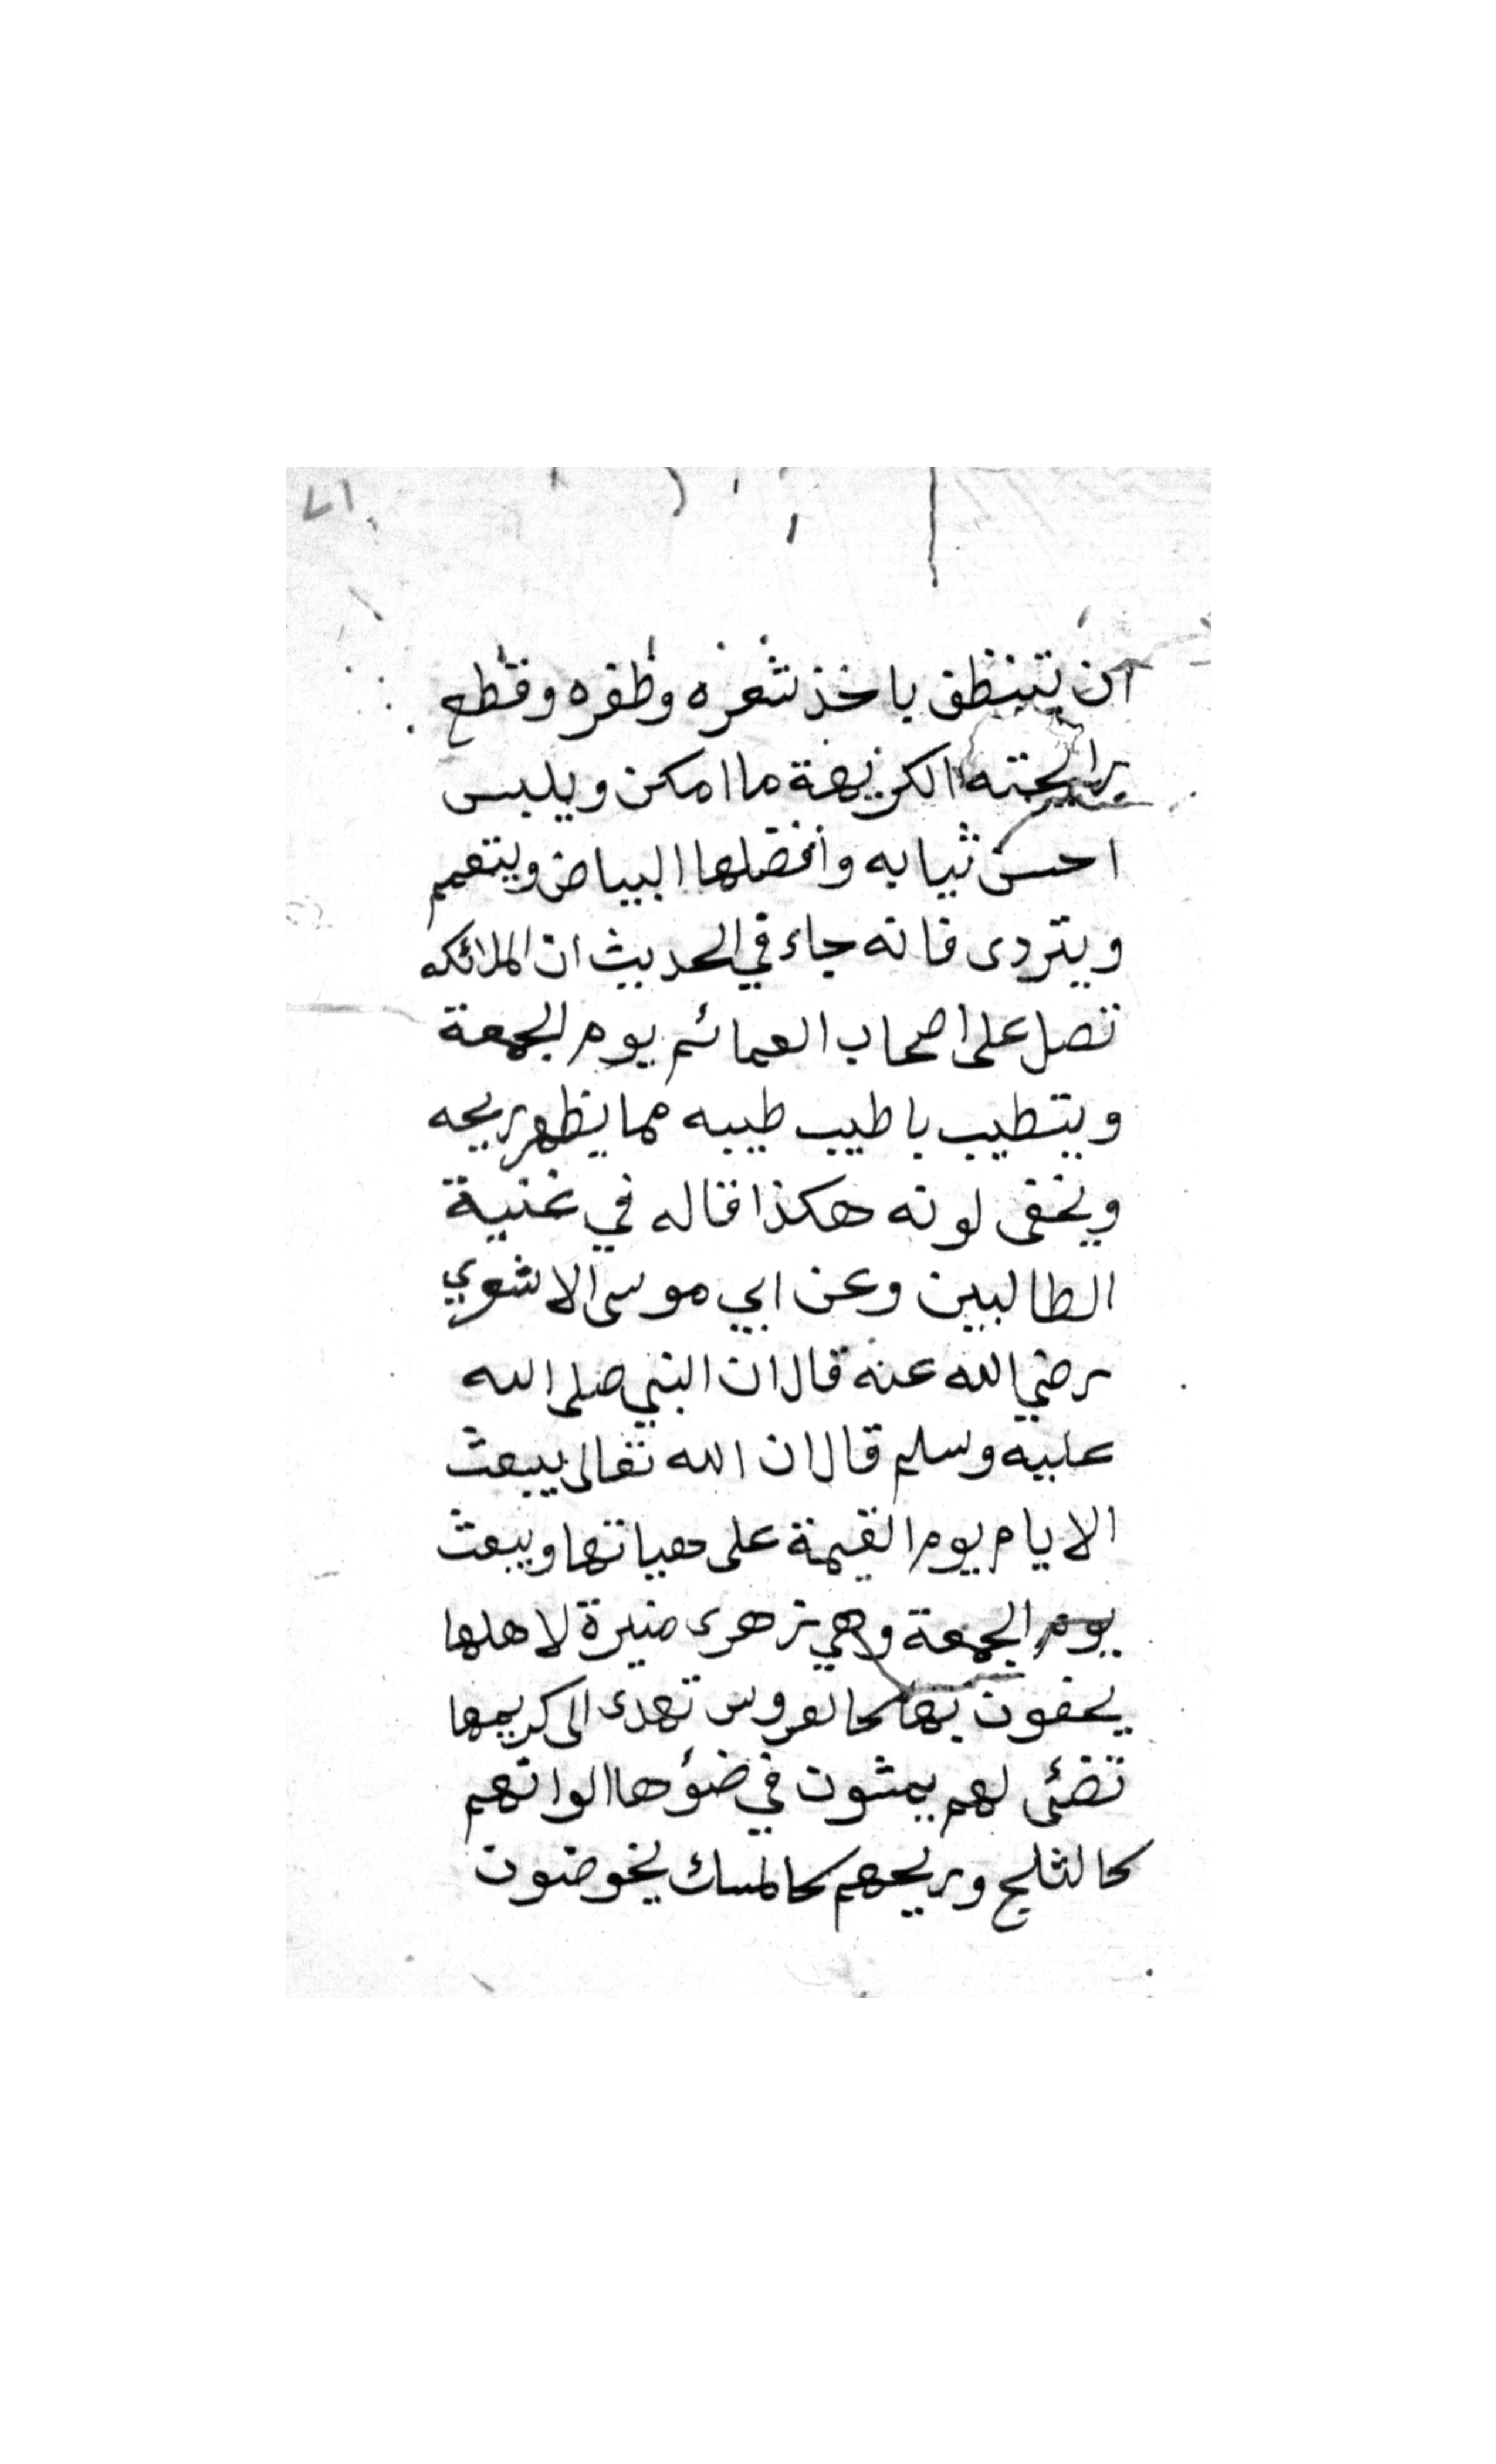 ان يتنظف باخذ شعره وظفره وقطع
رايحته الكريهة ما امكن ويلبس
احسن ثيابه وافضلها البياض ويتعمم
ويتردى فانه جاء في الحديث ان الملائكه
تصل على اصحاب العمائم يوم الجمعة
ويتطيب باطيب طيبه مما يظهر ريحه
ويخفى لونه هكذا قاله في غنية
الطالبين وعن ابي موسى الاشعري
رضي الله عنه قال ان النبي صلى الله
عليه وسلم قال ان الله تعالى يبعث
الايام يوم القيمة على هياتها ويبعث
يوم الجمعة وهي زهرى منيرة لاهلها
يحفون بها كالعروس تهدى الى كريمها
تضئى لهم يمشون في ضوئها الوانهم
كالثلج وريحهم كالمسك يخوضون